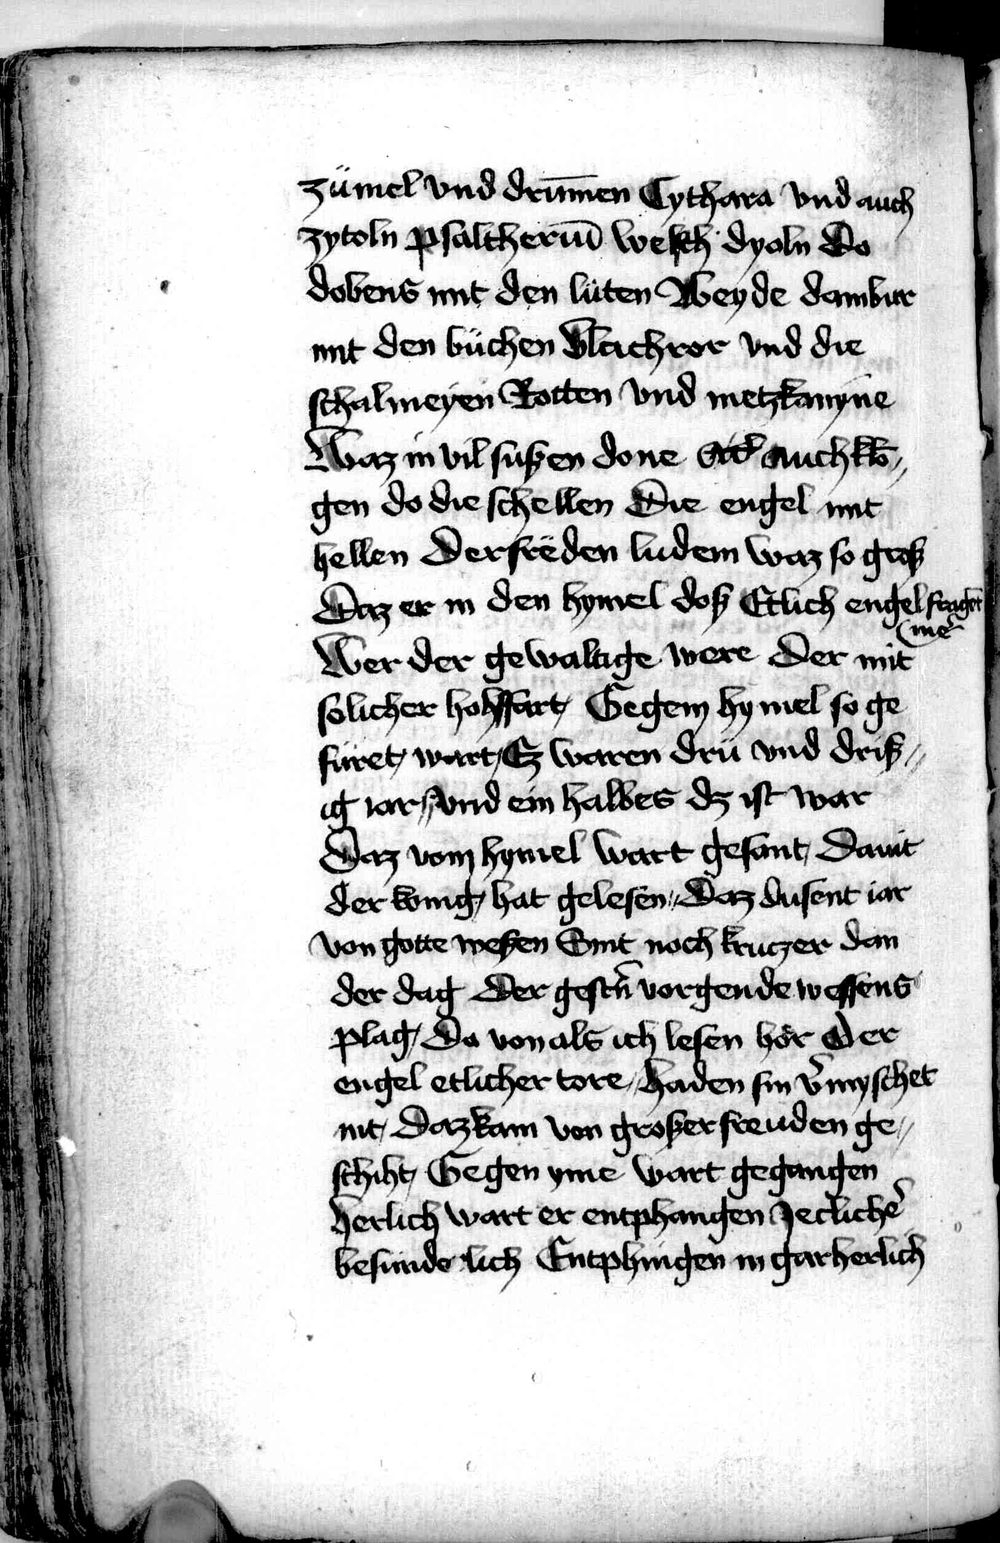 zümel vnd drum̄en Cythara vnd auch
zytoln psaltheruͦm welsch dyoln Do
dobens mit den lüten Weyde dambur
mit den büchen Blachror vnd die
schalmeyen Rotten vnd metzkanyne
Waz in vil sußen done auch klo⸗
gen do die schellen Die engel mit
hellen Der frëden ludem waz so groß
Daz er in den hymel doß Etlich engel fraget
(me᷑
Wer der gewaltige were Der mit
solicher hohffart, Gegem hymel so ge
füret, wart, Ez waren drü vnd driß⸗
ig iar, vnd ein halbes dz ist war
Daz vom hymel wart gesant, Dauit
der konig, hat gelesen, Daz dusent iar
von gotte weßen Sint noch kruczer dan
der dag Der gest᷑n vorgende wessens
plag, Da von als ich lesen hör Der
engel etlicher tore, Haden sin v᷑myschet
nit, Daz kam von großer freuden ge⸗
schiht, Gegen yme wart gegangen
Herlich wart er entphangen Jeclich᷑
besunde lich Entphingen in gar herlich